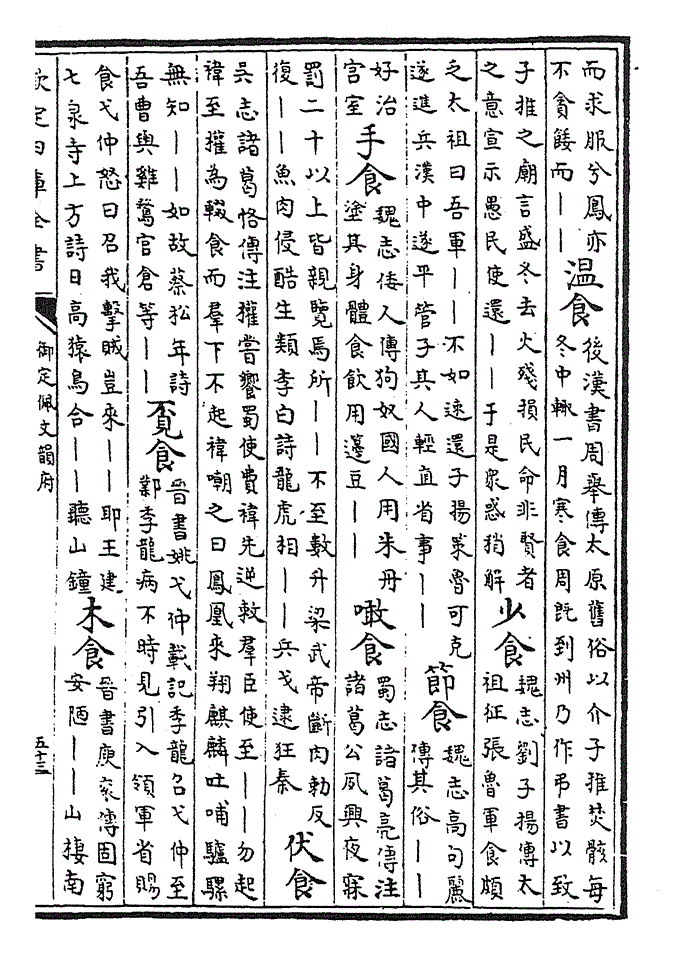 而求服兮鳳亦
不貪餧而｜｜
温食
後漢書周舉傳太原舊俗以介子推焚骸每
冬中輒一月寒食周既到州乃作弔書以致
子推之廟言盛冬去火殘損民命非賢者
之意宣示愚民使還｜｜于是衆惑稍解
少食
魏志劉子揚傳太
祖征張魯軍食頗
乏太祖曰吾軍｜｜不如速還子揚策魯可克
遂進兵漢中遂平管子其人輕直省事｜｜
節食
魏志高句麗
傳其俗｜｜
好治
宫室
手食
魏志倭人傳狗奴國人用朱丹
塗其身體食飲用籩豆｜｜
噉食
蜀志諸葛亮傳注
諸葛公夙興夜寐
罰二十以上皆親覽焉所｜｜不至數升梁武帝斷肉勅反
復｜｜魚肉侵酷生類李白詩龍虎相｜｜兵戈逮狂秦
伏食
吳志諸葛恪傳注權嘗饗蜀使費禕先逆敕羣臣使至｜｜勿起
禕至權為輟食而羣下不起禕嘲之曰鳳凰來翔麒麟吐哺驢騾
無知｜｜如故蔡松年詩
吾曹與雞鶩官倉等｜｜
覔食
晉書姚弋仲載記季龍召弋仲至
鄴季龍病不時見引入領軍省賜
食弋仲怒曰召我擊賊豈來｜｜耶王建
七泉寺上方詩日高猿鳥合｜｜聽山鐘
木食
晉書庾袞傳固窮
安陋｜｜山棲南
欽定四庫全書
御定佩文韻府
五十三